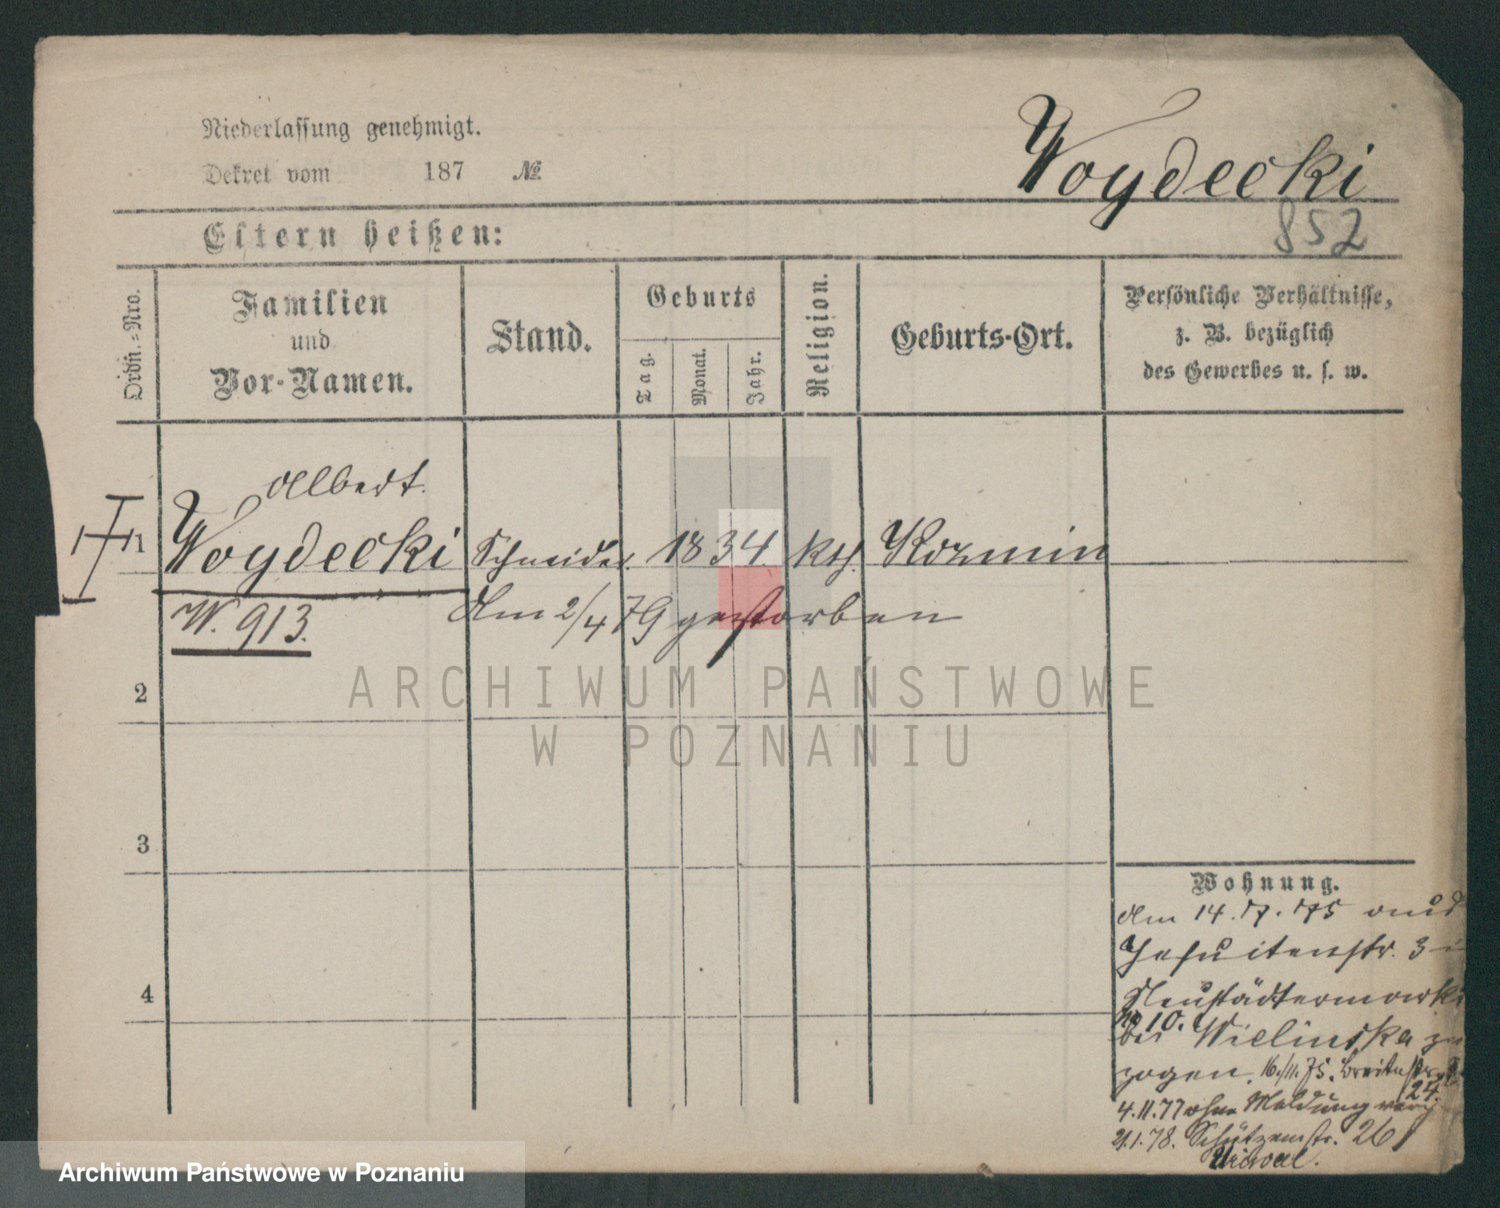 Niederlassung genehmigt.
Dekret vom 187 №
Woydecki
852
Eltern heißen:
Ordn.-Nro.
Familien
und
Vor-Namen.
Stand.
Geburts
Tag.
Monat.
Jahr.
Religion.
Geburts-Ort.
Persönliche Verhältnisse,
z. B. bezüglich
des Gewerbes u. s. w.
Albert
1 Woydecki Schneider 1834. kth. Kozmin
W. 913.
Am 2/4 79 gestorben
2
3
4
Wohnung.
Am 14.7.75 aus
Jesuitenstr. 3
Neustädtermarkt
№ 10.
bei Wielinska
zogen. 16./11.75. Breitestr.
24.
4.11.77 ohne Meldung
21.1.78. Schützenstr. 26
ARCHIWUM PAŃSTWOWE
W POZNANIU
Archiwum Państwowe w Poznaniu